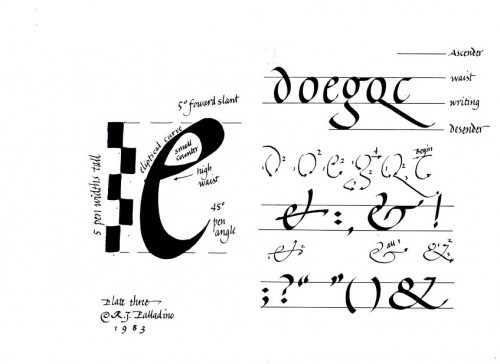 5° foward slant
eliptical curve
small
counter
high
waist
45°
pen
angle
5 pen widths tall
e
Plate three
© R.J. Palladino
1983
Ascender
waist
writing
desender
doegqc
Begin
& : , & !
all
; ? “ ” ( ) &